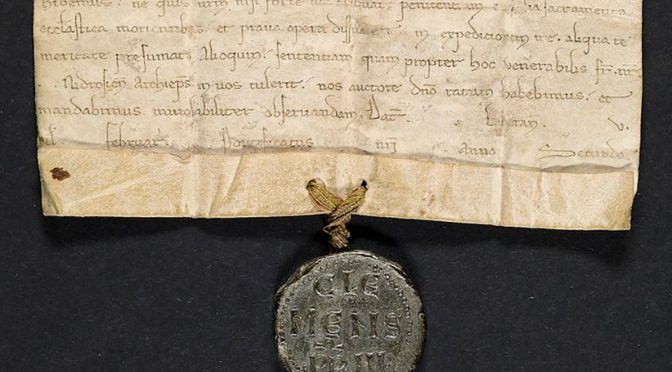 hibemus. ne quis nisi forte ut penitentiam sacramenta
et prava opera in expeditionem ire. aliqua te
meritate presumat. Alioquin. sententiam quam propter hoc venerabilis fr. nr.
Nidrosien Archieps in vos tulerit. nos auctore dno ratam habebimus. et
mandabimus inviolabiliter observandam. Dat. Lateran. V.
februar Pontificatus nri Anno Secundo.
CLE
MENS
PP III